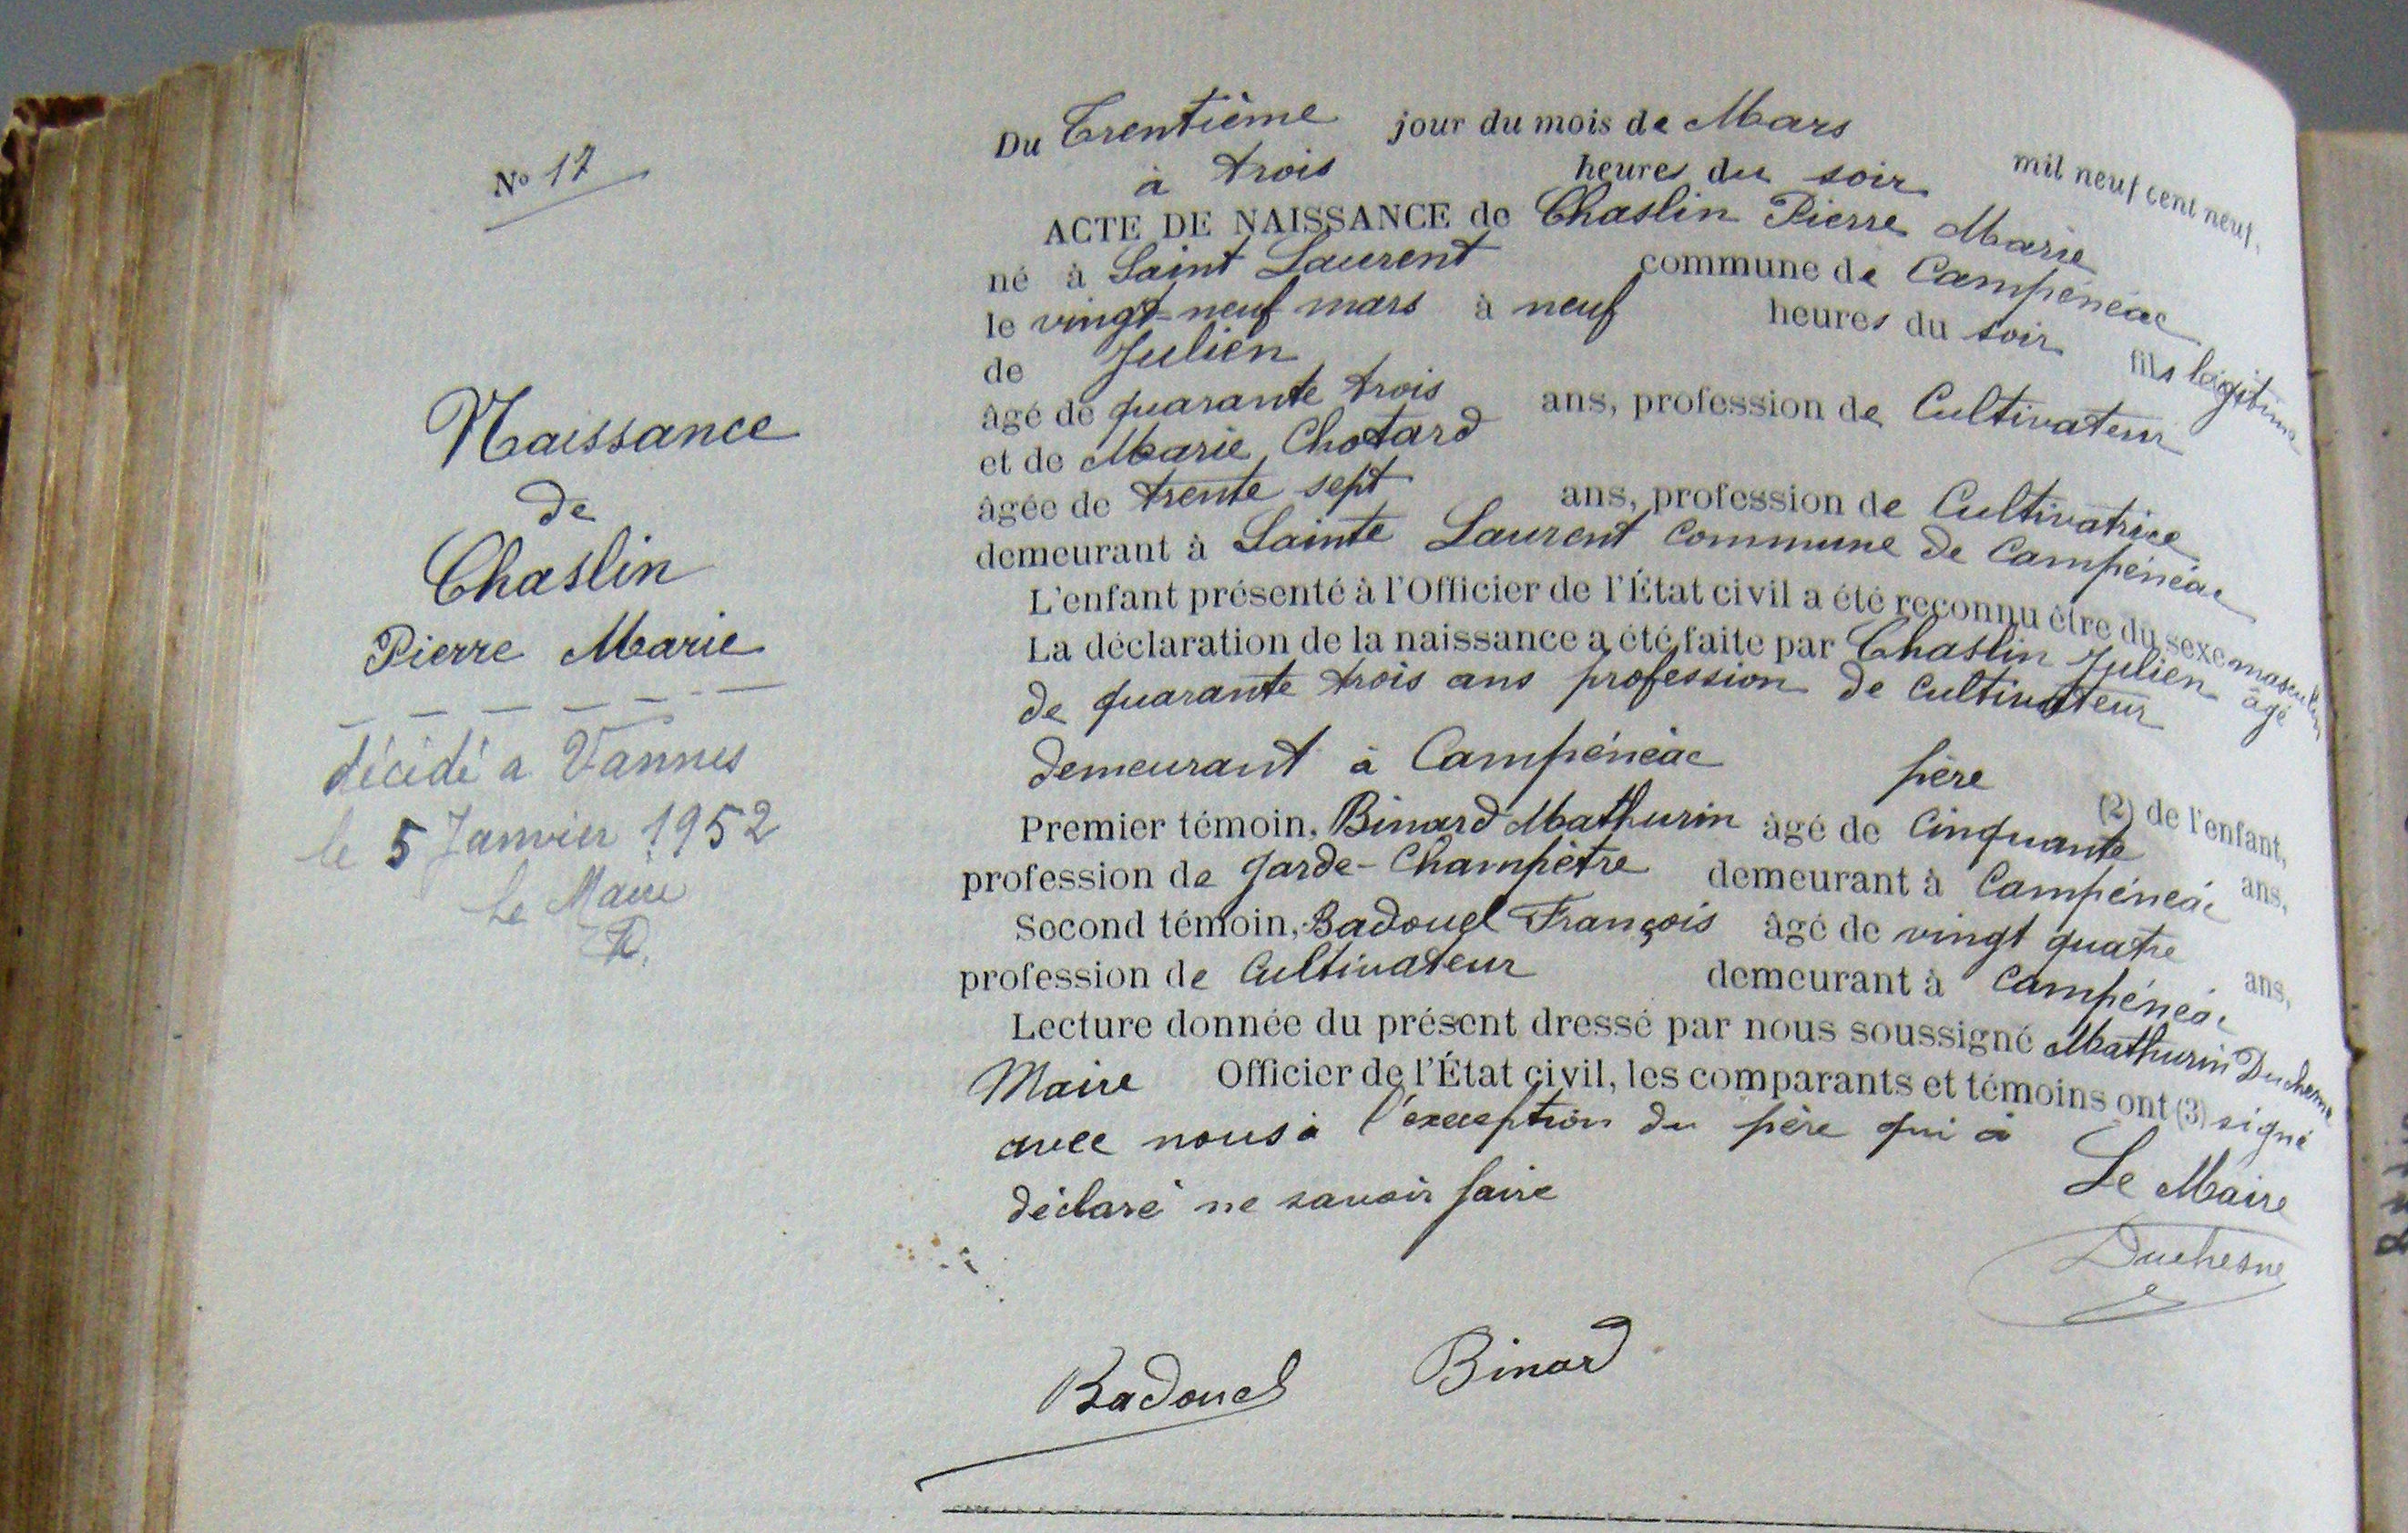 No 17
Naissance
de
Chaslin
Pierre Marie
décédé a Vannes
le 5 Janvier 1952
Le Maire
Du Trentième jour du mois de Mars mil neuf cent neuf,
à trois heures du soir
ACTE DE NAISSANCE de Chaslin Pierre Marie
né à Saint Laurent commune de Campénéac
le vingt-neuf mars à neuf heures du soir fils légitime
de Julien
âgé de quarante trois ans, profession de Cultivateur
et de Marie Chotard
âgée de trente sept ans, profession de Cultivatrice
demeurant à Sainte Laurent commune de Campénéac
L'enfant présenté à l'Officier de l'État civil a été reconnu être du sexe masculin
La déclaration de la naissance a été faite par Chaslin Julien âgé
de quarante trois ans profession de cultivateur
demeurant à Campénéac père (2) de l'enfant,
Premier témoin, Binard Mathurin âgé de Cinquante ans,
profession de garde-Champêtre demeurant à Campénéac
Second témoin, Badouel François âgé de vingt quatre ans,
profession de Cultivateur demeurant à Campénéac
Lecture donnée du présent dressé par nous soussigné Mathurin Duchesne
Maire Officier de l'État civil, les comparants et témoins ont (3) signé
avec nous à l'exception du père qui a
déclaré ne savoir faire
Le Maire
Duchesne
Badouel Binard